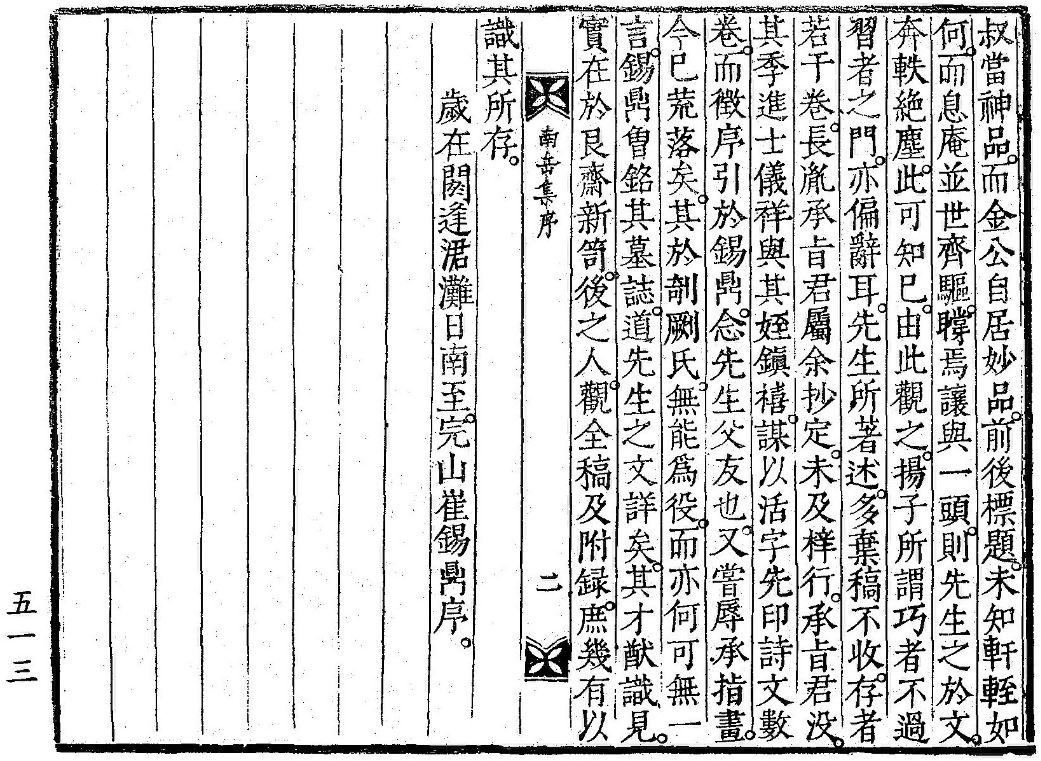 叔當神品。而金公自居妙品。前後標題。未知軒輊如
何。而息庵並世齊驅。瞠焉讓與一頭。則先生之於文。
奔軼絶塵。此可知已。由此觀之。揚子所謂巧者不過
習者之門。亦偏辭耳。先生所著述。多棄稿不收。存者
若干卷。長胤承旨君屬余抄定。未及梓行。承旨君没。
其季進士儀祥與其姪鎭禧。謀以活字先印詩文數
卷。而徵序引於錫鼎。念先生父友也。又嘗辱承指畫。
今已荒落矣。其於剞劂氏。無能爲役。而亦何可無一
言。錫鼎曽銘其墓誌。道先生之文詳矣。其才猷識見。
實在於艮齋新笥。後之人。觀全稿及附録。庶幾有以
南岳集序 二
識其所存。
歲在閼逢涒灘日南至。完山崔錫鼎序。
五一三